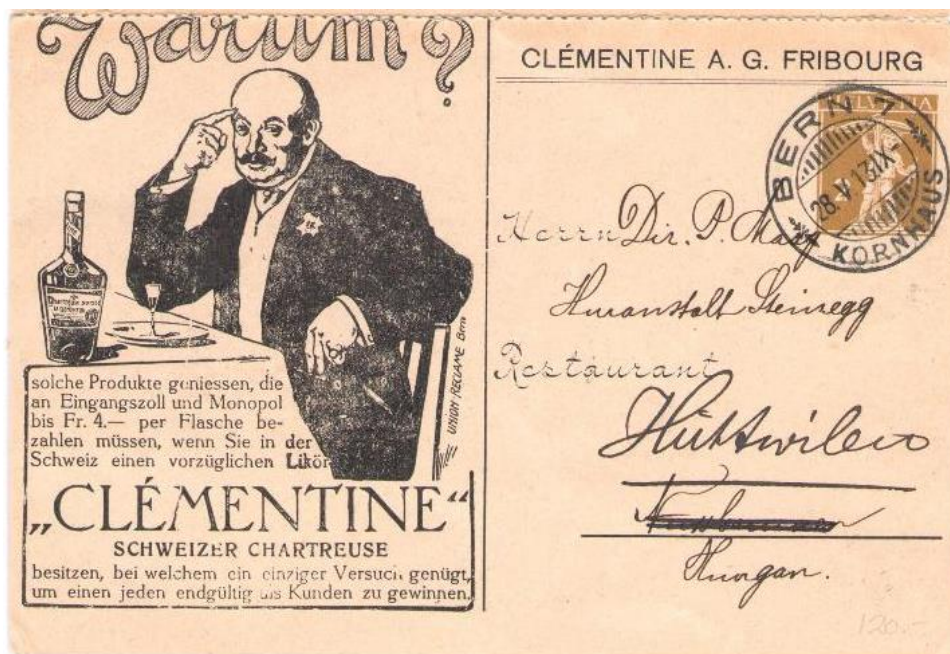 Warum?
solche Produkte geniessen, die
an Eingangszoll und Monopol
bis Fr. 4.— per Flasche be-
zahlen müssen, wenn Sie in der
Schweiz einen vorzüglichen Likör
„CLÉMENTINE“
SCHWEIZER CHARTREUSE
besitzen, bei welchem ein einziger Versuch genügt,
um einen jeden endgültig als Kunden zu gewinnen.
UNION RECLAME Bern
CLÉMENTINE A. G. FRIBOURG
HELVETIA
BERN 7
28.V.13.IX-
KORNHAUS
Herrn Dir. P.
Kuranstalt Steinegg
Restaurant
Hüttwilen
Thurgau.
120.-